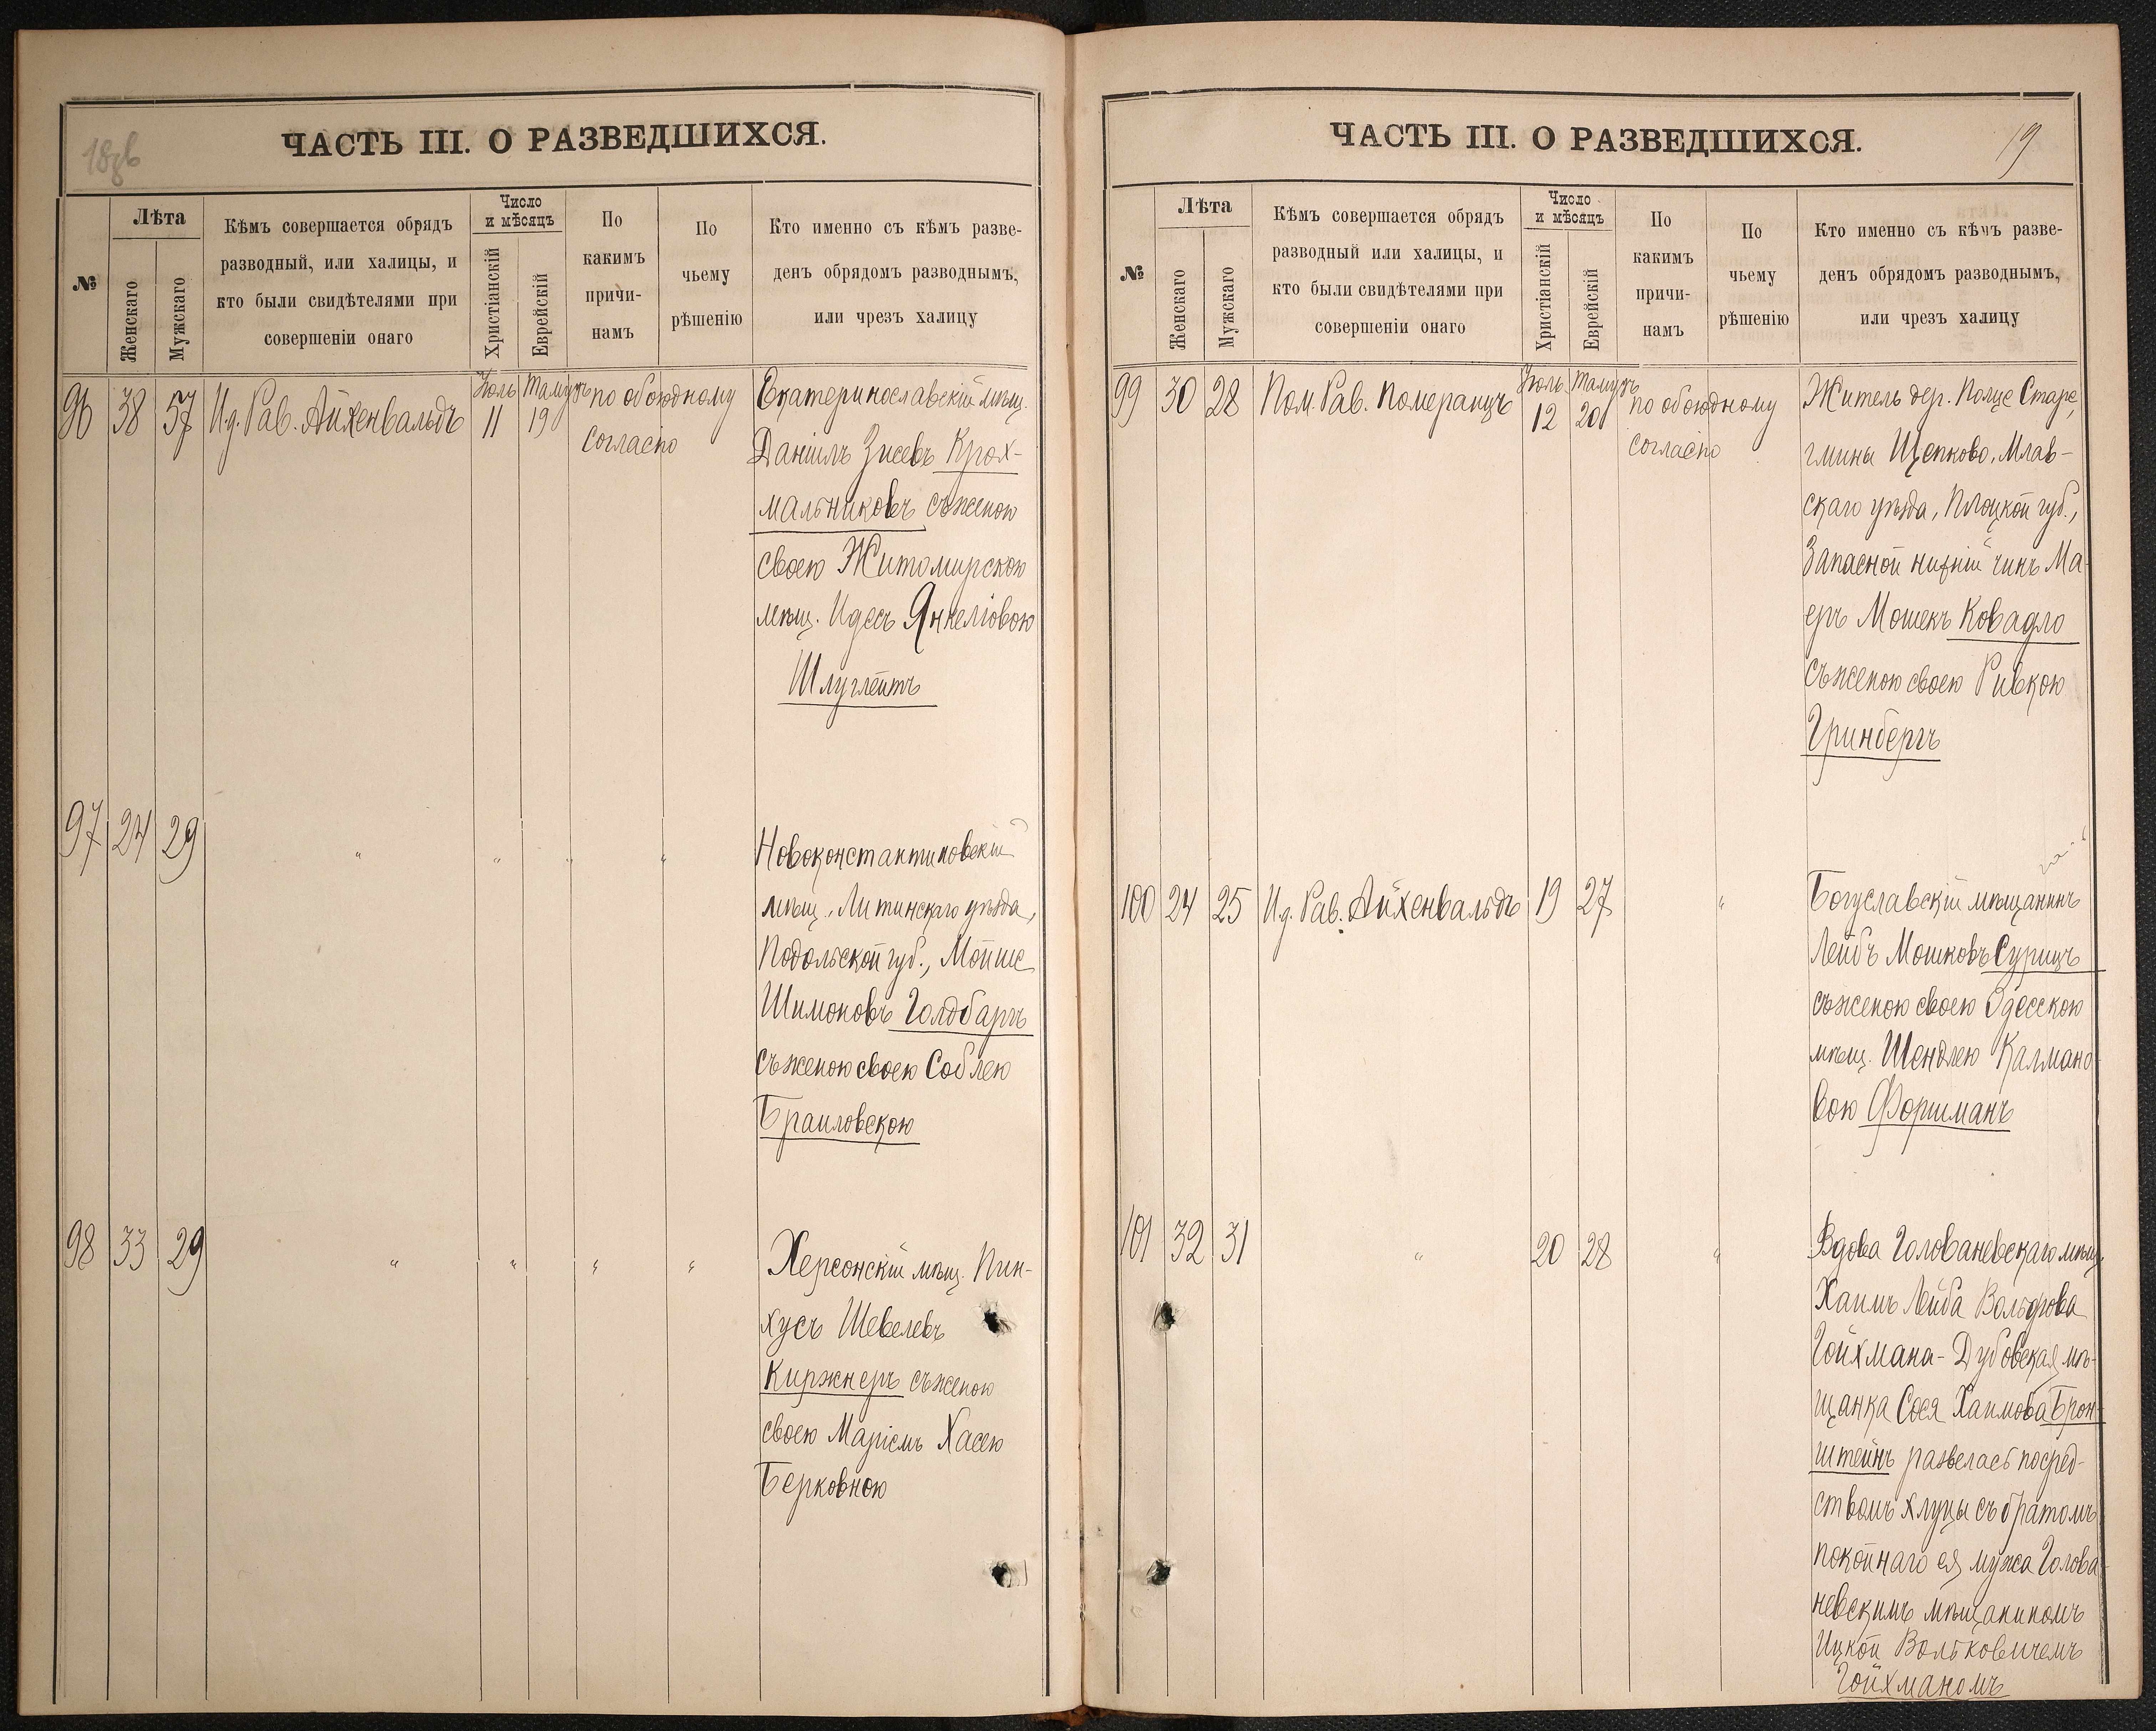 18об
ЧАСТЬ III. О РАЗВЕДШИХСЯ.
№
Лѣта
Женскаго
Мужскаго
Кѣмъ совершается обрядъ
разводный, или халицы, и
кто были свидѣтелями при
совершеніи онаго
Число
и мѣсяцъ
Христіанскій
Еврейскій
По
какимъ
причи-
намъ
По
чьему
рѣшенію
Кто именно съ кѣмъ разве-
денъ обрядомъ разводнымъ,
или чрезъ халицу
96 38 57 И.д. Рав. Айхенвальдъ Іюль 11 Тамузъ 19 по обоюдному
согласію
Екатеринославскій мѣщ.
Даніилъ Зусевъ Крох-
мальниковъ съ женою
своею Житомирскою
мѣщ. Идесъ Янкеліовою
Шлуглейтъ
97 24 29 " " " "
Новоконстантиновскій
мѣщ., Литинскаго уѣзда,
Подольской губ., Мойше
Шимоновъ Голдбаргъ
съ женою своею Соблею
Браиловскою
98 33 29 " " " "
Херсонскій мѣщ. Пин-
хусъ Шевелевъ
Киржнеръ съ женою
своею Маріемъ Хасею
Берковною
19
ЧАСТЬ III. О РАЗВЕДШИХСЯ.
№
Лѣта
Женскаго
Мужскаго
Кѣмъ совершается обрядъ
разводный или халицы, и
кто были свидѣтелями при
совершеніи онаго
Число
и мѣсяцъ
Христіанскій
Еврейскій
По
какимъ
причи-
намъ
По
чьему
рѣшенію
Кто именно съ кѣмъ разве-
денъ обрядомъ разводнымъ,
или чрезъ халицу
99 30 28 Пом. Рав. Померанцъ Іюль 12 Тамузъ 20 по обоюдному
согласію
Житель дер. Полце Старе,
гмины Щепково, Млав-
скаго уѣзда, Плоцкой губ.,
Запасной нижній чинъ Ма-
еръ Мошекъ Ковадло
съ женою своею Ривкою
Гринбергъ
100 24 25 И.д. Рав. Айхенвальдъ 19 27 "
Богуславскій мѣщанинъ
Лейбъ Мошковъ Сурицъ
съ женою своею Одесскою
мѣщ. Шендлею Калмано-
вою Форшманъ
101 32 31 " 20 28 "
Вдова Голованевскаго мѣщ.
Хаимъ Лейба Вольфова
Гойхмана - Дубовская мѣ-
щанка Сося Хаимова Брон-
штейнъ развелась посред-
ствомъ хлуцы съ братомъ
покойнаго ея мужа Голова-
невскимъ мѣщаниномъ
Ицкой Вольковичемъ
Гойхманомъ